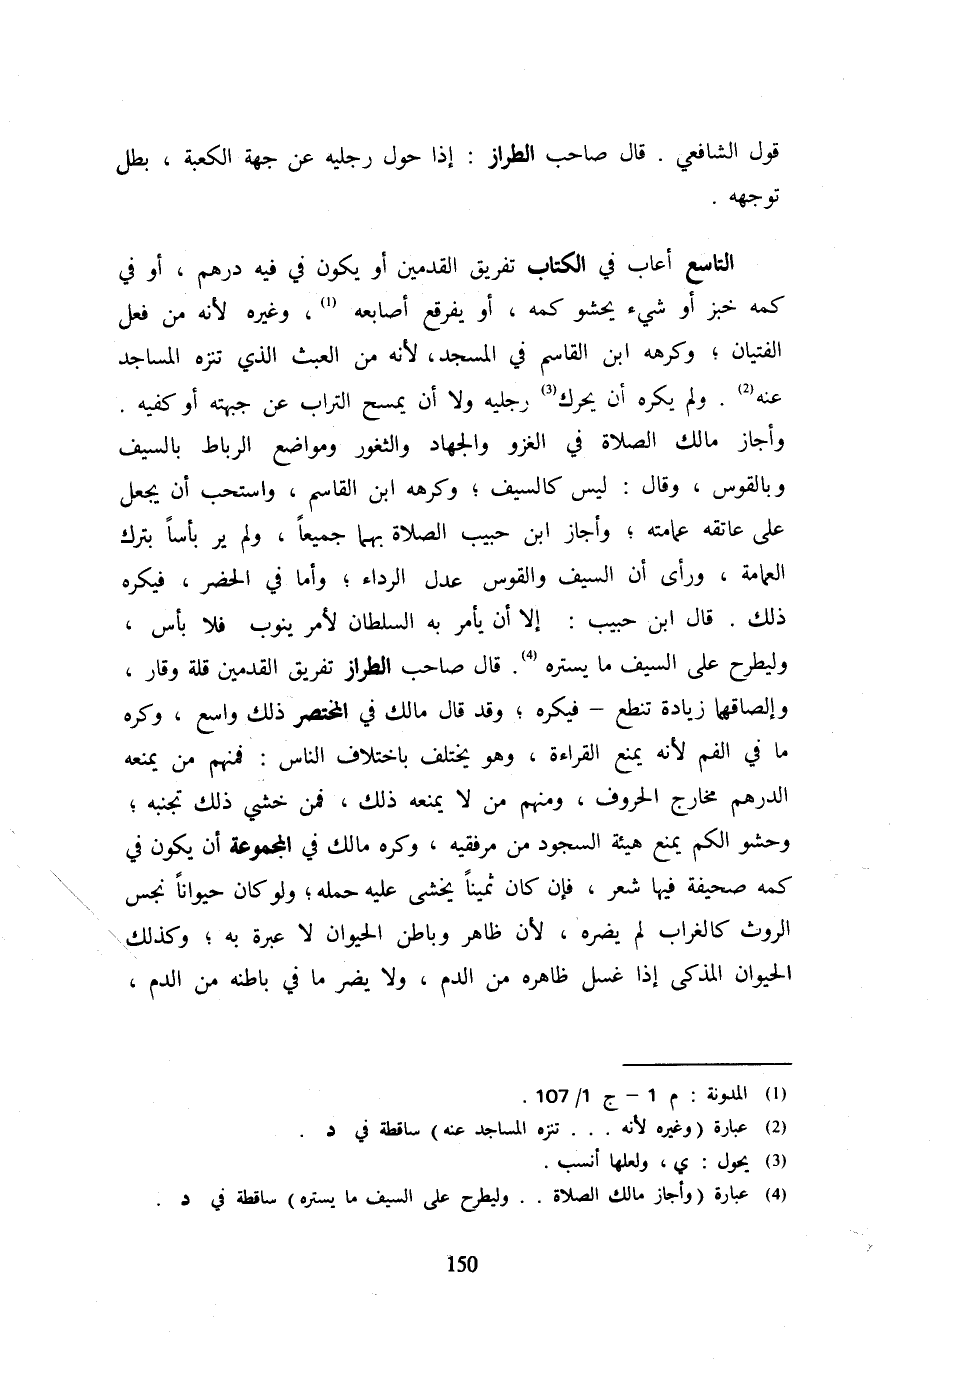 قول الشافعي . قال صاحب الطراز : إذا حول رجليه عن جهة الكعبة ، بطل
توجهه .
التاسع أعاب في الكتاب تفريق القدمين أو يكون في فيه درهم ، أو في
كمه خبز أو شيء يحشو كمه ، أو يفرقع أصابعه (1) ، وغيره لأنه من فعل
الفتيان ؛ وكرهه ابن القاسم في المسجد، لأنه من العبث الذي تنزه المساجد
عنه(2) . ولم يكره أن يحرك(3) رجليه ولا أن يمسح التراب عن جبهته أو كفيه .
وأجاز مالك الصلاة في الغزو والجهاد والثغور ومواضع الرباط بالسيف
وبالقوس ، وقال : ليس كالسيف ؛ وكرهه ابن القاسم ، واستحب أن يجعل
على عاتقه عمامته ؛ وأجاز ابن حبيب الصلاة بهما جميعاً ، ولم ير بأساً بترك
العمامة ، ورأى أن السيف والقوس عدل الرداء ؛ وأما في الحضر ، فيكره
ذلك . قال ابن حبيب : إلا أن يأمر به السلطان لأمر ينوب فلا بأس ،
وليطرح على السيف ما يستره (4). قال صاحب الطراز تفريق القدمين قلة وقار ،
وإلصاقها زيادة تنطع – فيكره ؛ وقد قال مالك في المختصر ذلك واسع ، وكره
ما في الفم لأنه يمنع القراءة ، وهو يختلف باختلاف الناس : فمنهم من يمنعه
الدرهم مخارج الحروف ، ومنهم من لا يمنعه ذلك ، فمن خشي ذلك تجنبه ؛
وحشو الكم يمنع هيئة السجود من مرفقيه ، وكره مالك في المجموعة أن يكون في
كمه صحيفة فيها شعر ، فإن كان ثميناً يخشى عليه حمله؛ ولو كان حيواناً نجس
الروث كالغراب لم يضره ، لأن ظاهر وباطن الحيوان لا عبرة به ؛ وكذلك
الحيوان المذكى إذا غسل ظاهره من الدم ، ولا يضر ما في باطنه من الدم ،
(1) المدونة : م 1 – ج 1/ 107 .
(2) عبارة (وغيره لأنه . . . تنزه المساجد عنه) ساقطة في د .
(3) يحول : ي ، ولعلها أنسب .
(4) عبارة (وأجاز مالك الصلاة . . وليطرح على السيف ما يستره) ساقطة في د .
150